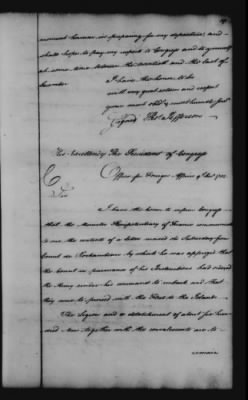 moment however in preparing for my departure, and
shall hope to pay my respects to Congress and to yourself
at some time between the twentieth and the last of
December.
I have the honor to be
with very great esteem and respect
your most obedt. & most humble servt
(signed) Ths. Jefferson
His Excellency The President of Congress
Office for Foreign Affairs 9 Decr. 1782.
Sir
I have the honor to inform Congress
that the Minister Plenipotentiary of France communicated
to me the contents of a letter received on Saturday from
Count de Rochambeau by which he was apprized that
the Count in pursuance of his Instructions had ordered
the Army under his command to embark and that
they were to proceed with the Fleet to the Islands.
The Legion and a detachment of about six hun-
dred Men together with the convalescents are to
remain